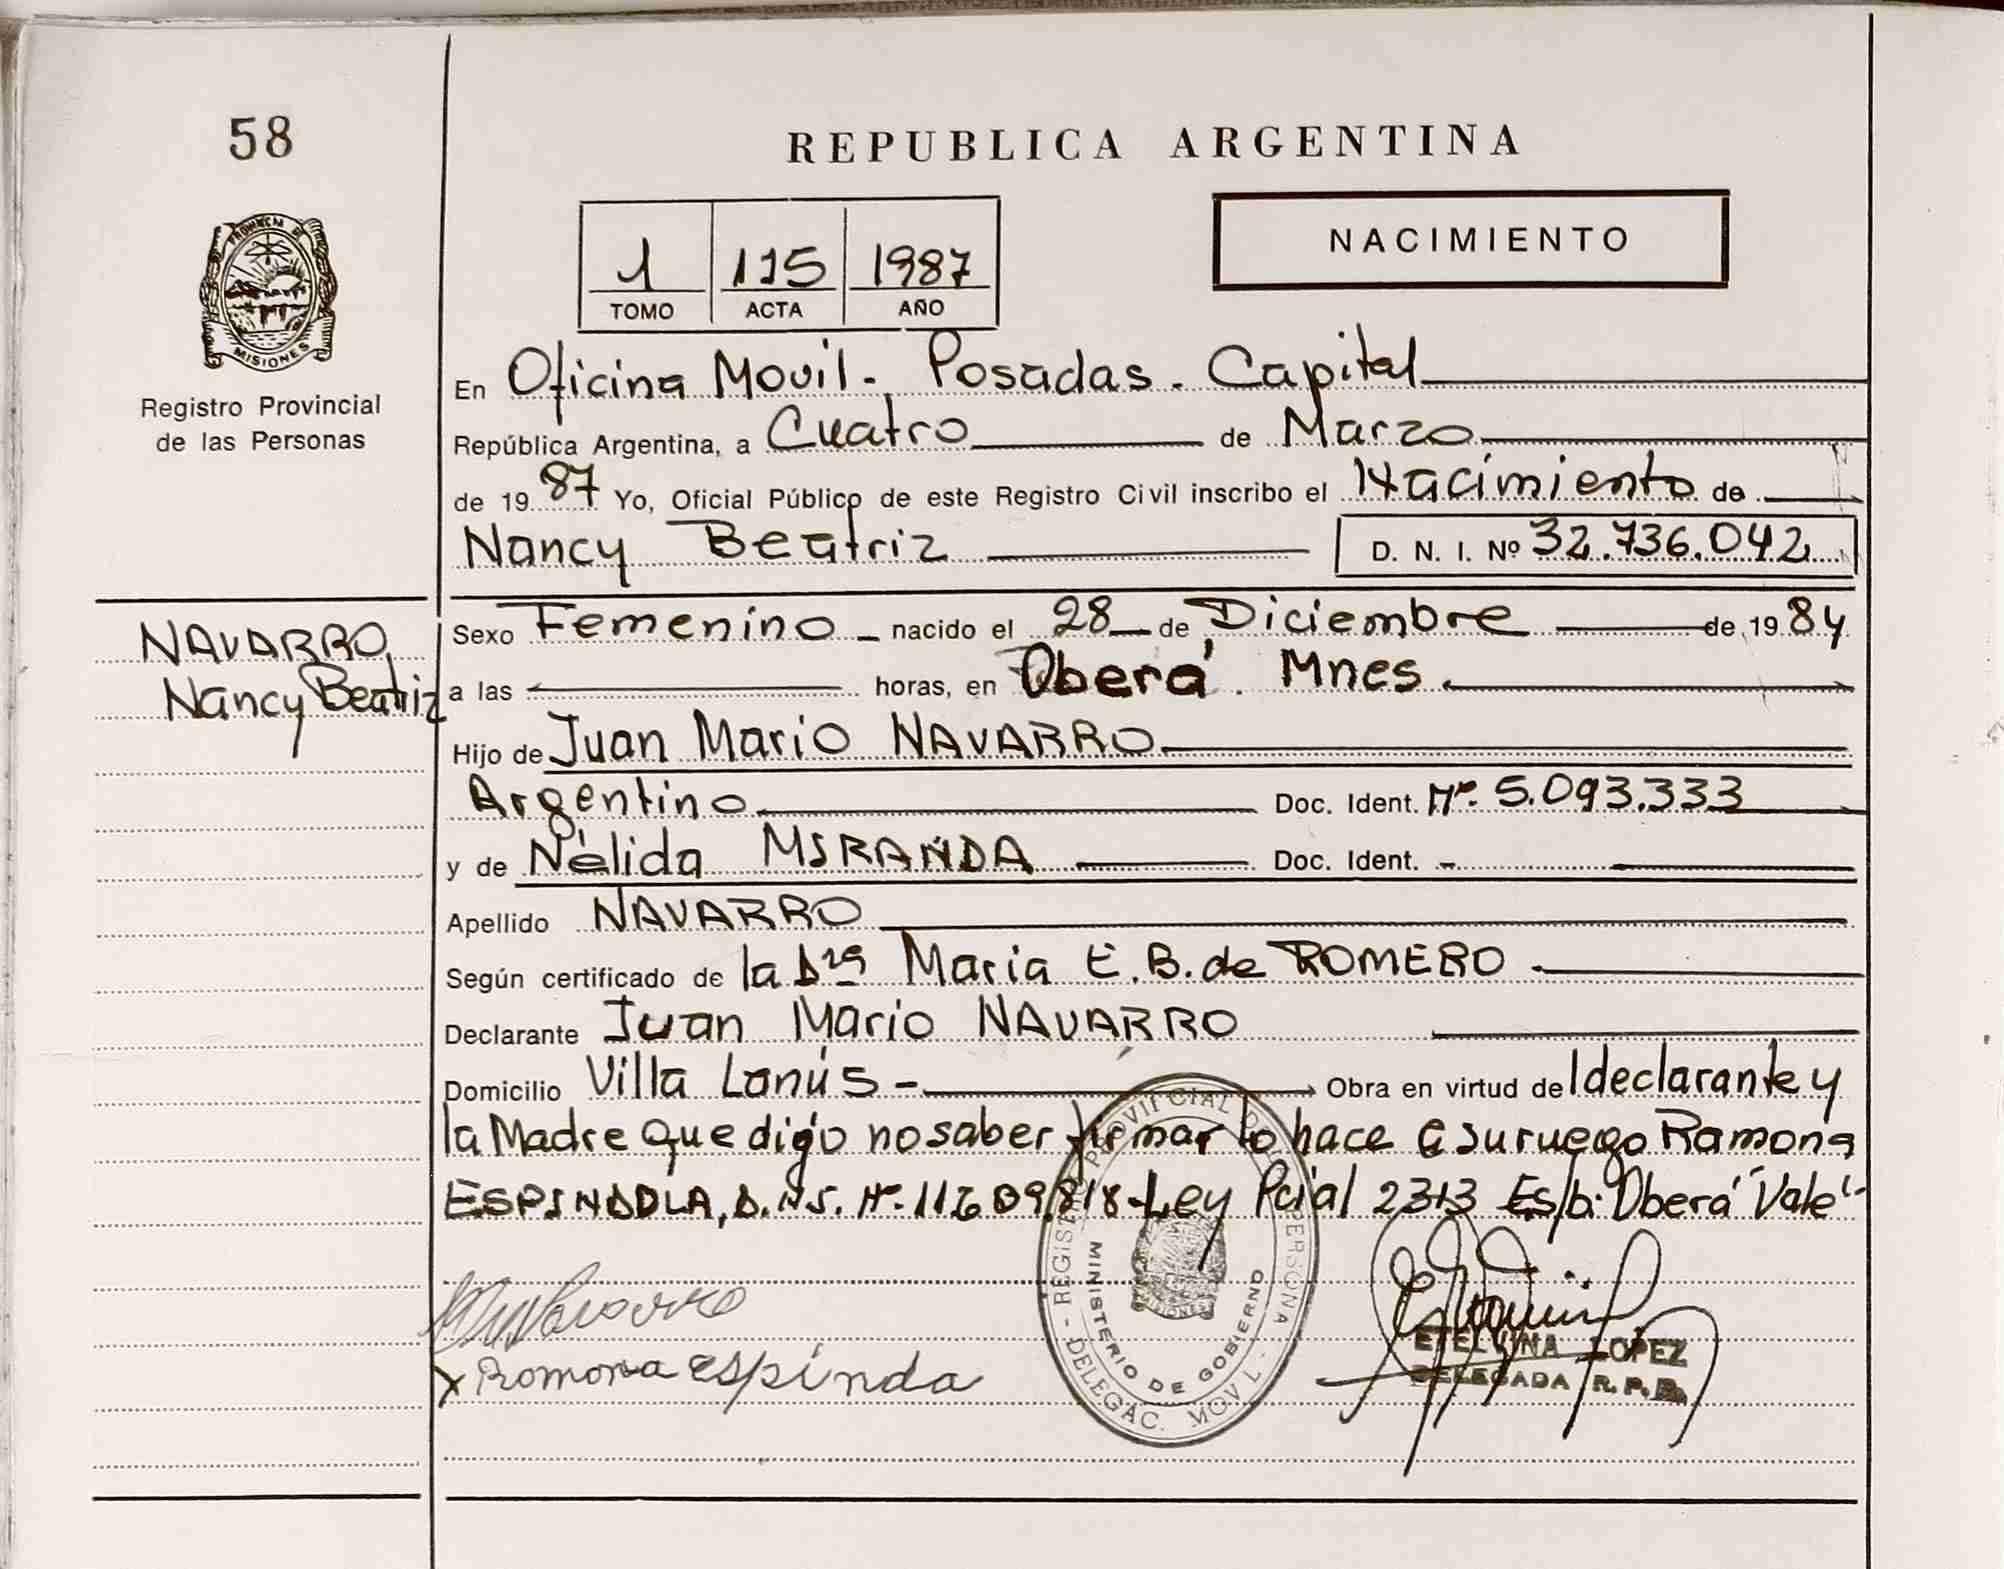 58
REPUBLICA ARGENTINA
PROVINCIA DE
MISIONES
Registro Provincial
de las Personas
1 115 1987
TOMO ACTA AÑO
NACIMIENTO
En Oficina Movil - Posadas - Capital
República Argentina, a Cuatro de Marzo
de 1987 Yo, Oficial Público de este Registro Civil inscribo el Nacimiento de
Nancy Beatriz D. N. I. Nº 32.736.042
NAVARRO,
Nancy Beatriz
Sexo Femenino nacido el 28 de Diciembre de 1984
a las horas, en Oberá. Mnes
Hijo de Juan Mario NAVARRO
Argentino Doc. Ident. Nº. 5.093.333
y de Nélida MIRANDA Doc. Ident.
Apellido NAVARRO
Según certificado de la Dra Maria E.B. de ROMERO
Declarante Juan Mario NAVARRO
Domicilio Villa Lanús - Obra en virtud del declarante y
la Madre que digo no saber firmar lo hace a su ruego Ramona
ESPINDOLA, D.N.I. Nº. 11609.818-Ley Pcial 2313 Es/b: Oberá "Vale"
Navarro
x Romona espinda
REGISTRO PROVINCIAL DE PERSONA - DELEGAC. MOVIL -
MINISTERIO DE GOBIERNO
ETELVINA LOPEZ
DELEGADA R.P.P.